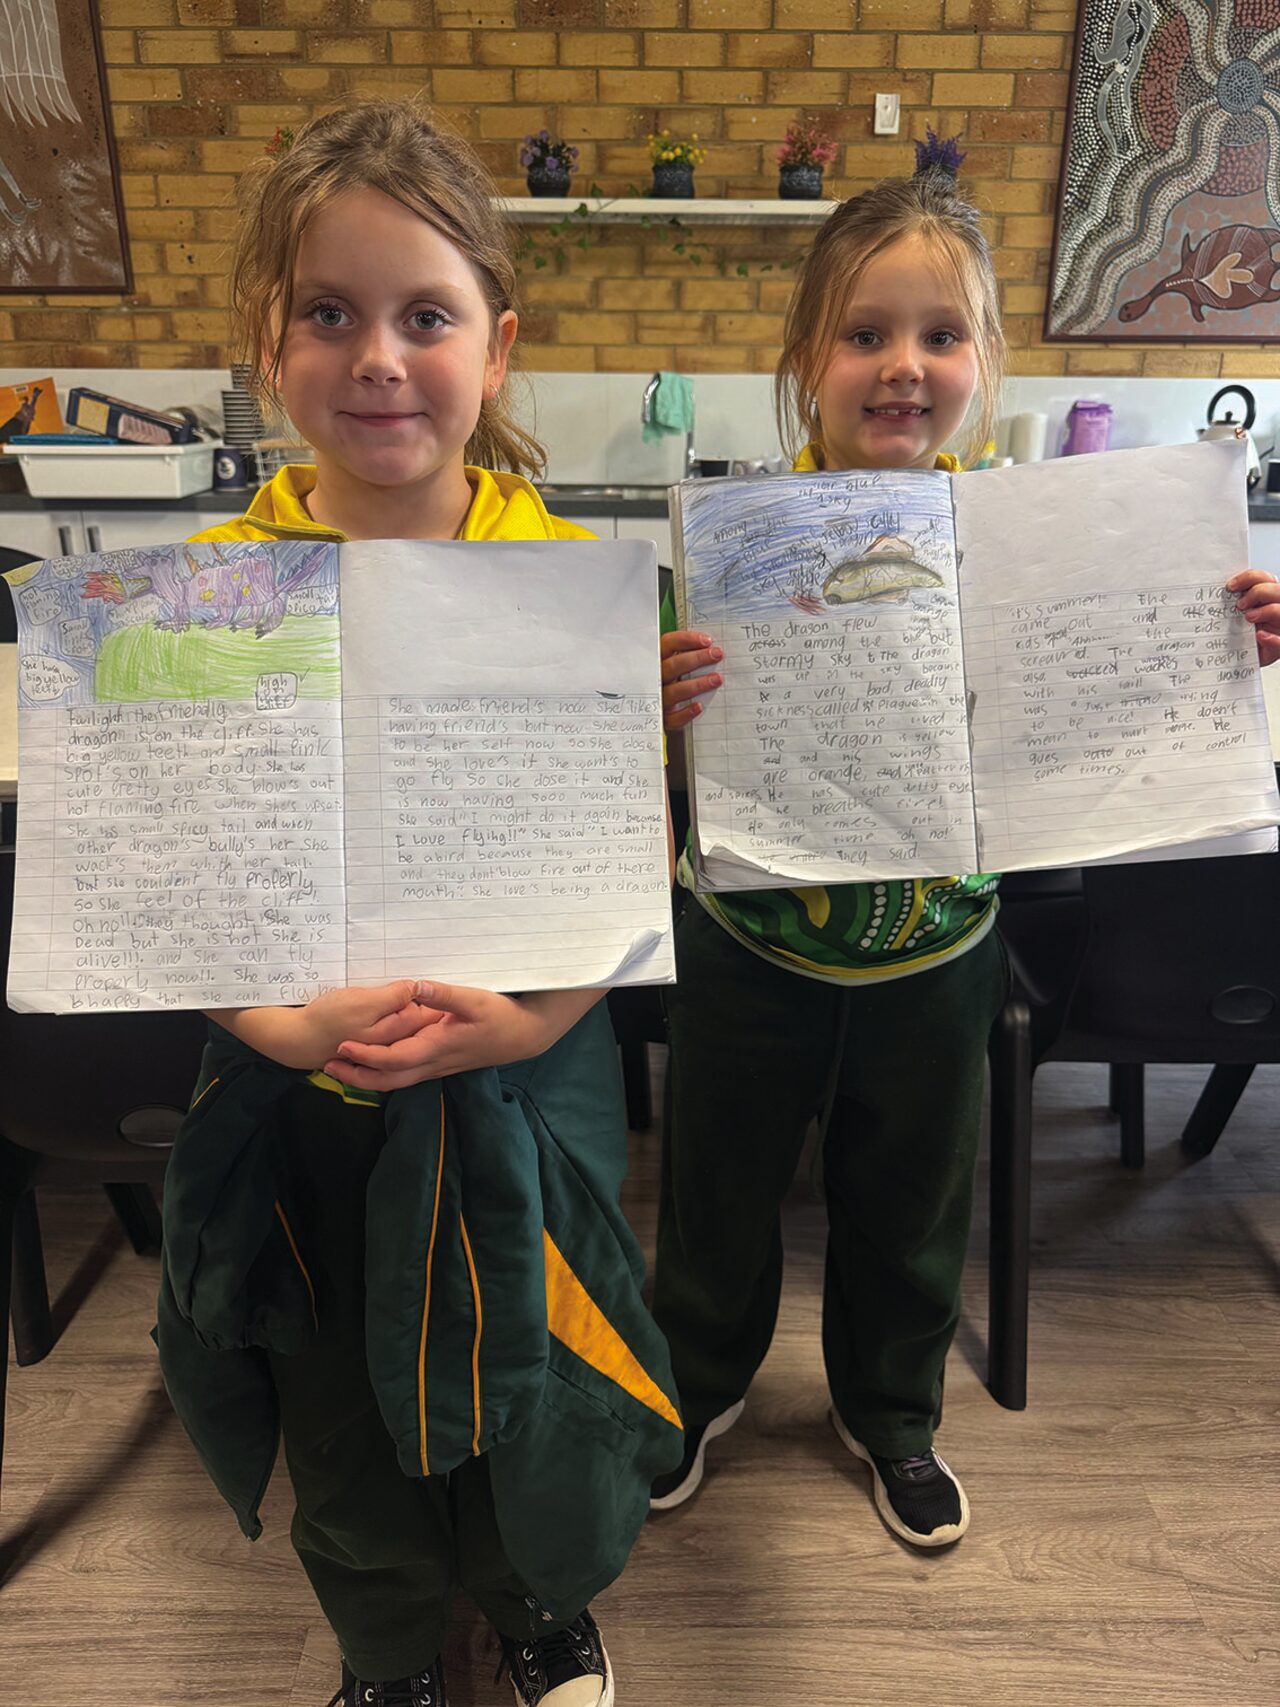 hot
flaming
fire
Small
pink
spots
She has
big yellow
teeth
small
spicy
high
cliff
Twilight the friendly
dragon is on the cliff. She has
big yellow teeth and small pink
spot's on her body. She has
cute pretty eyes She blow's out
hot flaming fire when she's upset.
She has small spicy tail and when
other dragon's bully's her she
wack's them whith her tail.
but she couldent fly properly.
So she feel of the cliff!
Oh no!! they thought She was
Dead but she is not she is
alive!!!. and She can fly
properly now!!. She was so
happy that she can fly
She made friend's now she likes
having friend's but now She want's
to be her self now so she close
and she love's it she want's to
go fly So she dose it and she
is now having sooo much fun
She said "I might do it again because
I love flying!!" She said "I want to
be a bird because they are small
and they dont blow fire out of there
mouth". She love's being a dragon.
blue
sky
Among the
blue
scally
orange
The dragon flew
across among the but
stormy sky the dragon
was up in the sky because
a very bad, deadly
sickness called Plaguein the
town that he lived in
The dragon is yellow
and and his wings
are orange, and patterns
and spikes He has cute dolly eyes
and he breaths fire!
He only comes out in
summer time "oh no!"
They said.
"it's summer!" The
came out and
kids Ahhh the kids
screamed. The dragon
also wacked wackes people
with his tail! The dragon
was a just trying
to be nice! He doen't
mean to hurt He
gues out of control
some times.